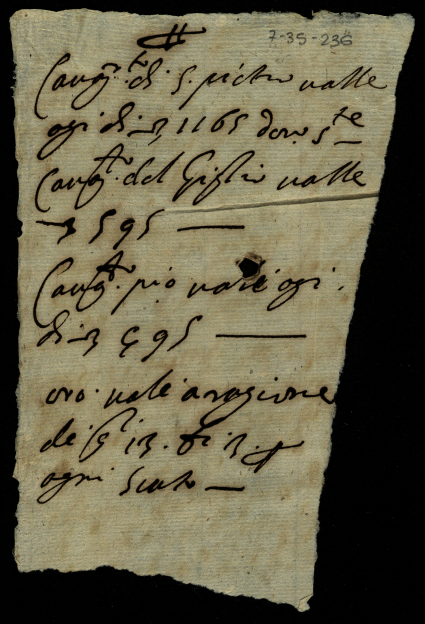 7-35-236
Cangto. di S. pietro valle
ogi di 1165 don. Ste
Cangto. del Giglio valle
595
Cangto. pio vale ogi.
di 595
oro. vale a ragione
de 13. di 3.
ogni scuto